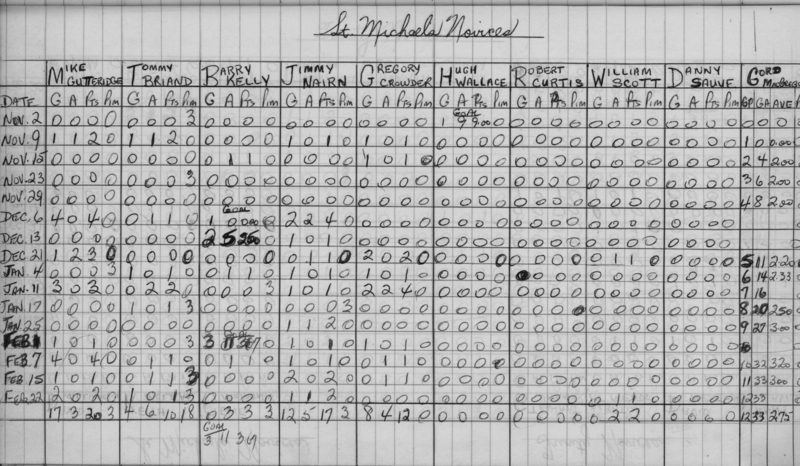 St. Michaels Novices
MIKE GUTTERIDGE TOMMY BRIAND BARRY KELLY JIMMY NAIRN GREGORY CROWDER HUGH WALLACE ROBERT CURTIS WILLIAM SCOTT DANNY SAUVE GORD
DATE G A Pts Pim G A Pts Pim G A Pts Pim G A Pts Pim G A Pts Pim G A Pts Pim G A Pts Pim G A Pts Pim G A Pts Pim GP GA AVE
NOV. 2 0 0 0 0 0 0 0 3 0 0 0 0 0 0 0 0 0 0 0 0 GOAL 1 9 9.00 0 0 0 0 0 0 0 0 0 0 0 0 0 0 0 0
NOV. 9 1 1 2 0 1 1 2 0 0 0 0 0 1 0 1 0 1 0 1 0 0 0 0 0 0 0 0 0 0 0 0 0 0 0 0 0 1 0 0.00
NOV. 15 0 0 0 0 0 0 0 0 0 1 1 0 0 0 0 0 1 0 1 0 0 0 0 0 0 0 0 0 0 0 0 0 0 0 0 0 2 4 2.00
NOV. 23 0 0 0 0 0 0 0 3 0 0 0 0 0 0 0 0 0 0 0 0 0 0 0 0 0 0 0 0 0 0 0 0 0 0 0 0 3 6 2.00
NOV. 29 0 0 0 0 0 0 0 0 0 0 0 0 0 0 0 0 0 0 0 0 0 0 0 0 0 0 0 0 0 0 0 0 0 0 0 0 4 8 2.00
DEC. 6 4 0 4 0 0 1 1 0 GOAL 1 0 0.00 2 2 4 0 0 0 0 0 0 0 0 0 0 0 0 0 0 0 0 0 0 0 0 0
DEC. 13 0 0 0 0 0 0 0 0 2 5 2.50 1 0 1 0 0 0 0 0 0 0 0 0 0 0 0 0 0 0 0 0 0 0 0 0
DEC. 21 1 2 3 0 0 0 0 0 0 0 0 0 0 1 1 0 2 0 2 0 0 0 0 0 0 0 0 0 0 1 1 0 0 0 0 0 5 11 2.20
JAN. 4 0 0 0 3 1 0 1 0 0 1 1 0 1 0 1 0 1 0 1 0 0 0 0 0 0 0 0 0 0 0 0 0 0 0 0 0 6 14 2.33
JAN. 11 3 0 3 0 0 2 2 0 0 0 0 3 1 0 1 0 2 2 4 0 0 0 0 0 0 0 0 0 0 0 0 0 0 0 0 0 7 16
JAN. 17 0 0 0 0 1 0 1 3 0 0 0 0 0 0 0 3 0 0 0 0 0 0 0 0 0 0 0 0 0 0 0 0 0 0 0 0 8 20 2.50
JAN. 25 0 0 0 0 0 0 0 0 0 0 0 0 1 1 2 0 0 0 0 0 0 0 0 0 0 0 0 0 0 0 0 0 0 0 0 0 9 27 3.00
FEB. 1 1 0 1 0 0 0 0 3 GOAL 3 11 3.67 1 0 1 0 1 0 1 0 0 0 0 0 0 0 0 0 0 0 0 0 0 0 0 0
FEB. 7 4 0 4 0 0 1 1 0 0 1 1 0 1 0 1 0 0 1 1 0 0 0 0 0 0 0 0 0 0 0 0 0 0 0 0 0 10 32 3.20
FEB. 15 1 0 1 0 0 1 1 3 0 0 0 0 2 0 2 0 0 1 1 0 0 0 0 0 0 0 0 0 0 0 0 0 0 0 0 0 11 33 3.00
FEB. 22 2 0 2 0 1 0 1 3 0 0 0 0 1 1 2 0 0 0 0 0 0 0 0 0 0 0 0 0 0 1 1 0 0 0 0 0 12 33
17 3 20 3 4 6 10 18 0 3 3 3 12 5 17 3 8 4 12 0 0 0 0 0 0 0 0 0 0 2 2 0 0 0 0 0 12 33 2.75
GOAL
3 11 3.67